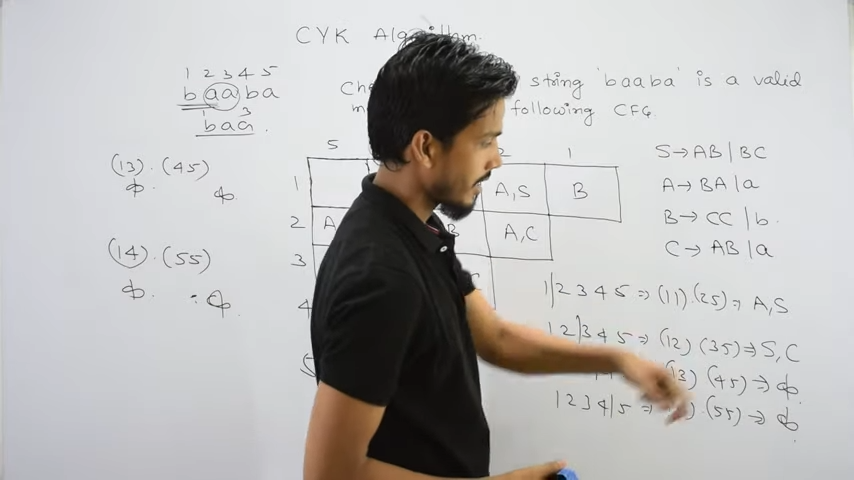 CYK Algorithm.
1 2 3 4 5
b aa ba
1 3
baa.
string 'baaba' is a valid
following CFG.
(13) . (45)
ɸ ɸ.
(14) . (55)
ɸ. : ɸ.
5 2 1
1 A,S B
2 A B A,C
3
4
5
S→AB|BC
A→BA|a
B→CC|b.
C→AB|a
1|2 3 4 5 ⇒ (11).(25) ⇒ A,S
1 2|3 4 5 ⇒ (12) (35) ⇒ S,C
(13) (45) ⇒ ɸ
1 2 3 4|5 ⇒ (55) ⇒ ɸ.